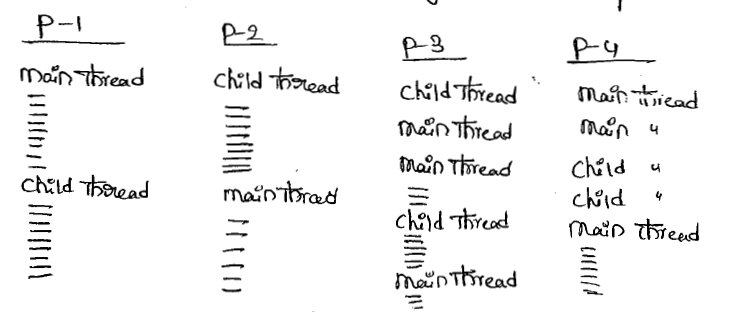 P-1
Main Thread
Child Thread
P-2
Child Thread
Main Thread
P-3
Child Thread
Main Thread
Main Thread
Child Thread
Main Thread
P-4
Main Thread
Main "
Child "
Child "
Main Thread